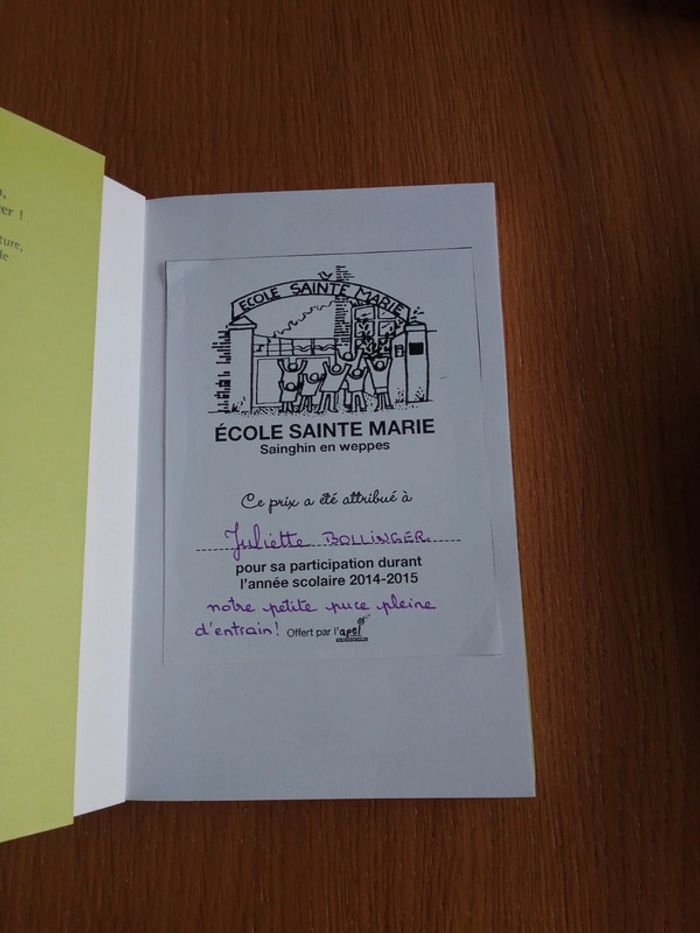 er !
ture,
ECOLE SAINTE MARIE
ÉCOLE SAINTE MARIE
Sainghin en weppes
Ce prix a été attribué à
Juliette BOLLINGER
pour sa participation durant
l'année scolaire 2014-2015
notre petite puce pleine
d'entrain! Offert par l'apel